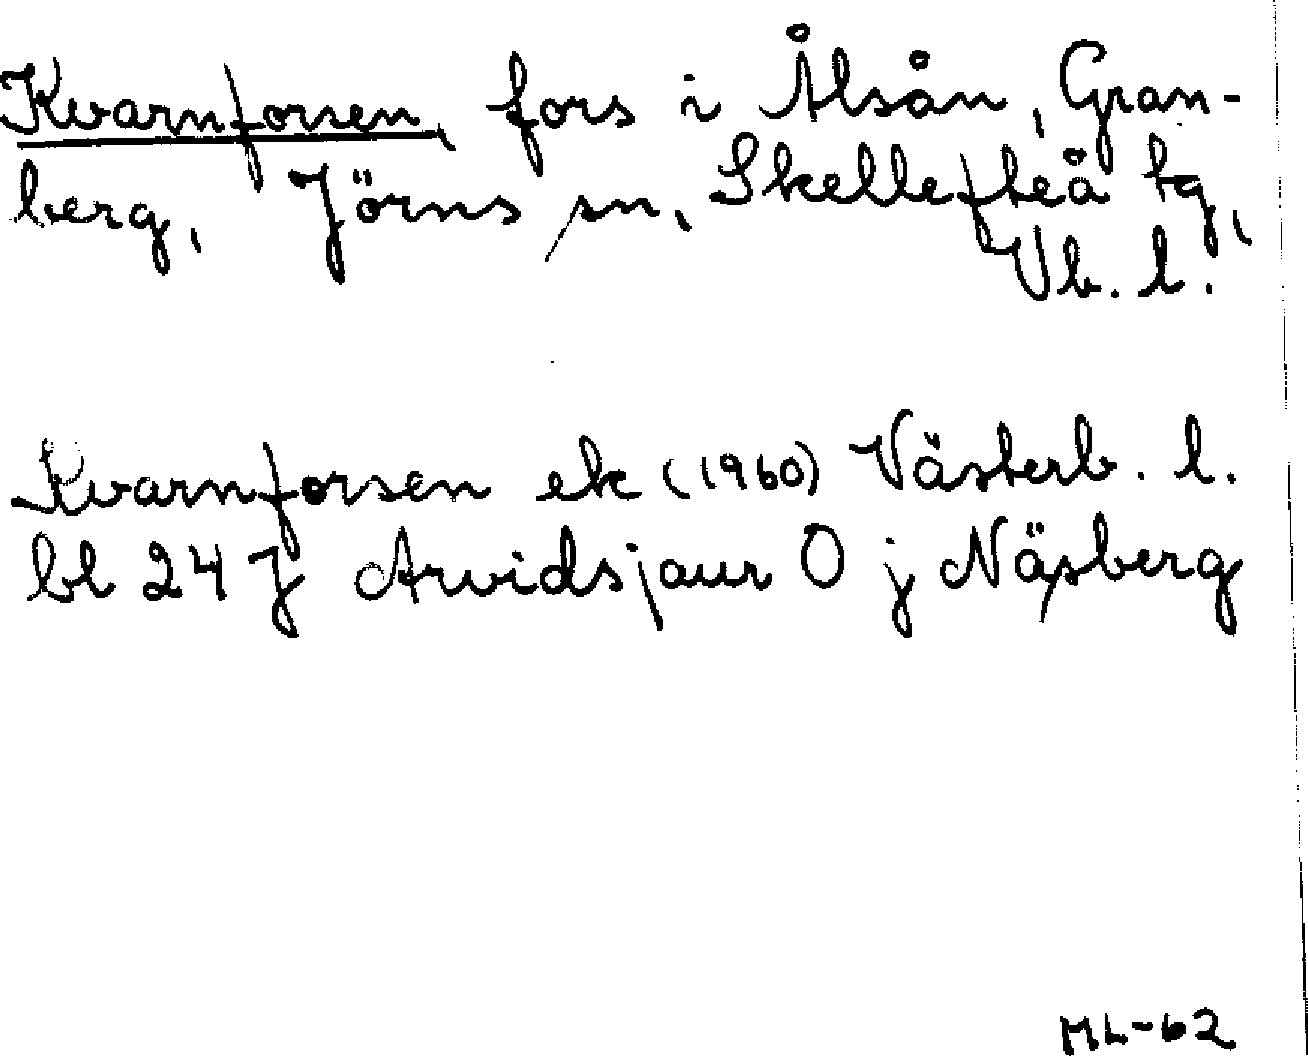 Kvarnforsen, fors i Ålsån, Gran-
berg, Jörns sn, Skellefteå tg,
Vb. l.
Kvarnforsen ek (1960) Västerb. l.
bl 24 J Arvidsjaur O j Näsberg
ML-62